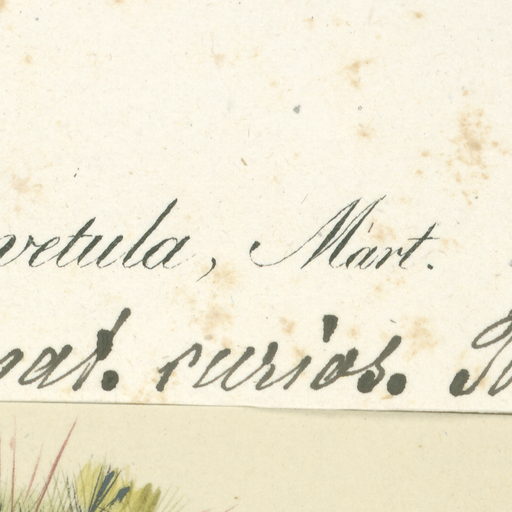 vetula, Mart.
nat. curios.